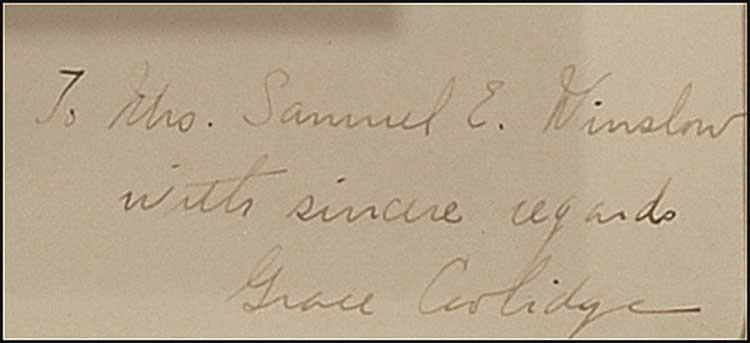 To Mrs. Samuel E. Winslow
with sincere regards
Grace Coolidge